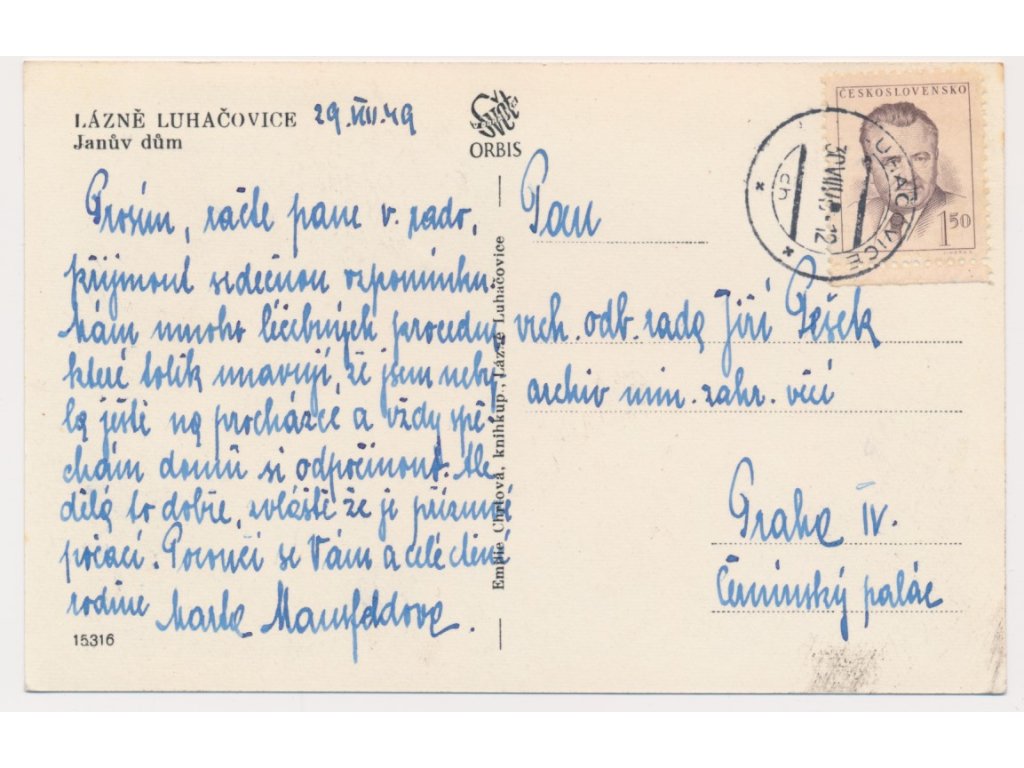 LÁZNĚ LUHAČOVICE 29.VIII.49
Janův dům
Prosím, račte pane v. rado,
přijmout srdečnou vzpomínku.
Mám mnoho léčebných procedur,
které tolik unavují, že jsem neby
la ještě na procházce a vždy spě
chám domů si odpočinout. Ale
dělá to dobře, zvláště že je příznivé
počasí. Poroučí se Vám a celé ctěné
rodině Marta Mansfeldova.
15316
Svět
ORBIS
Emilie Chrlová, knihkup., Lázně Luhačovice
ČESKOSLOVENSKO
1 50
LUHAČOVICE
ch
Pan
vrch. odb. rada Jiří Pešek
archiv min. zahr. věcí
Praha IV.
Černínský palác